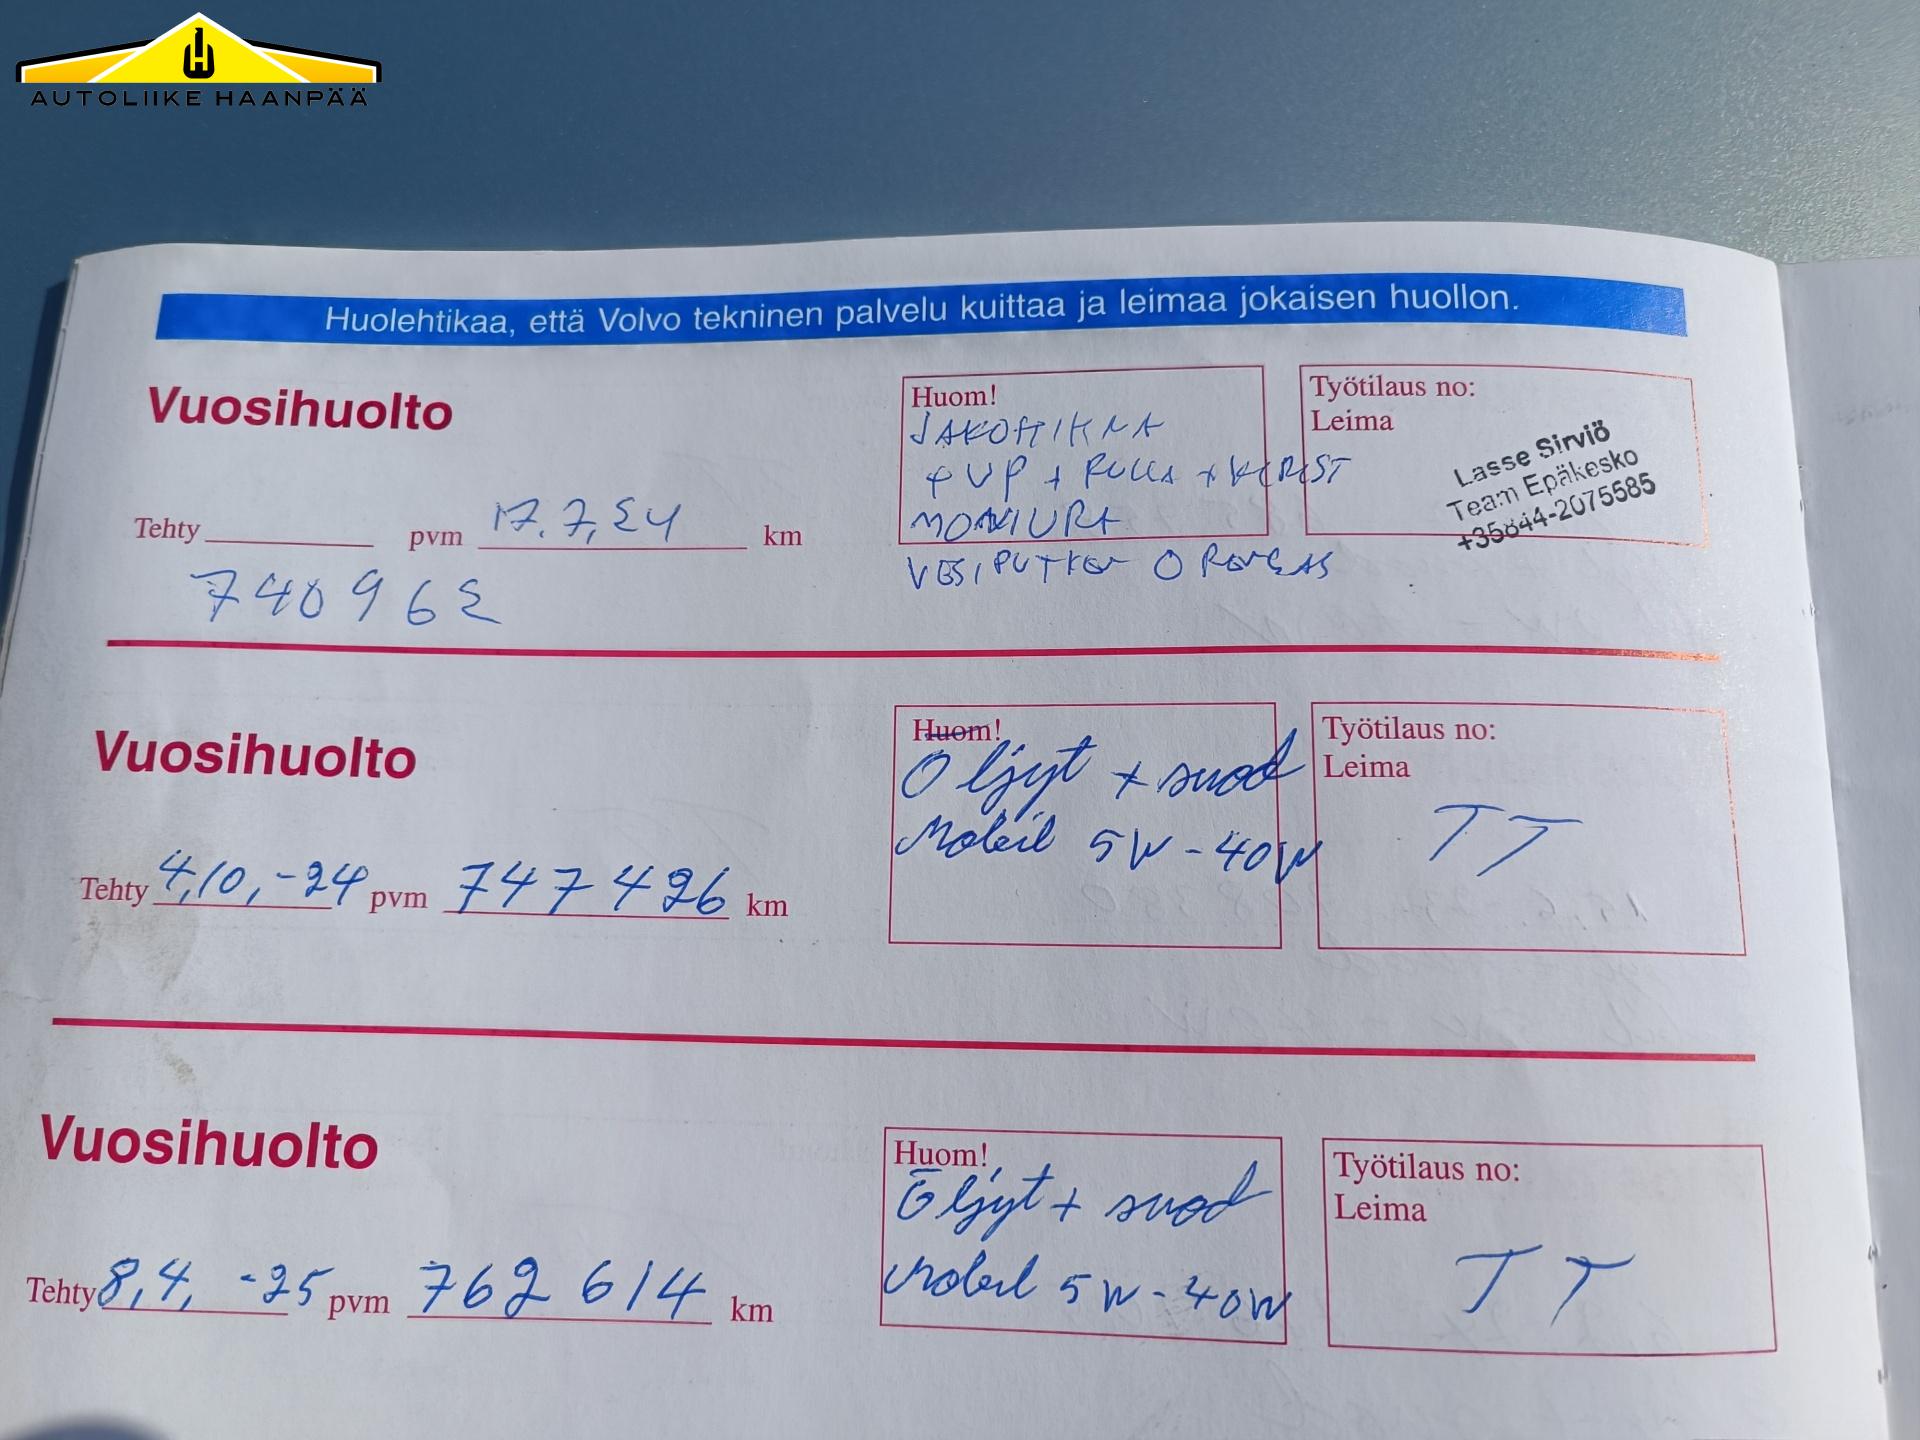 AUTOLIIKE HAANPÄÄ
Huolehtikaa, että Volvo tekninen palvelu kuittaa ja leimaa jokaisen huollon.
Vuosihuolto
Tehty pvm 17.7,24 km
740962
Huom!
JAKOHIHNA
+ VP + RULLA + KIRIST
MONIURA
VESIPUTKEN O RENGAS
Työtilaus no:
Leima
Lasse Sirviö
Team Epäkesko
+35844-2075585
Vuosihuolto
Tehty 4,10,-24 pvm 747 426 km
Huom!
Öljyt + suod
Mobil 5W-40W
Työtilaus no:
Leima
TT
Vuosihuolto
Tehty 8,4, -25 pvm 762 614 km
Huom!
Öljyt + suod
Mobil 5W-40W
Työtilaus no:
Leima
TT